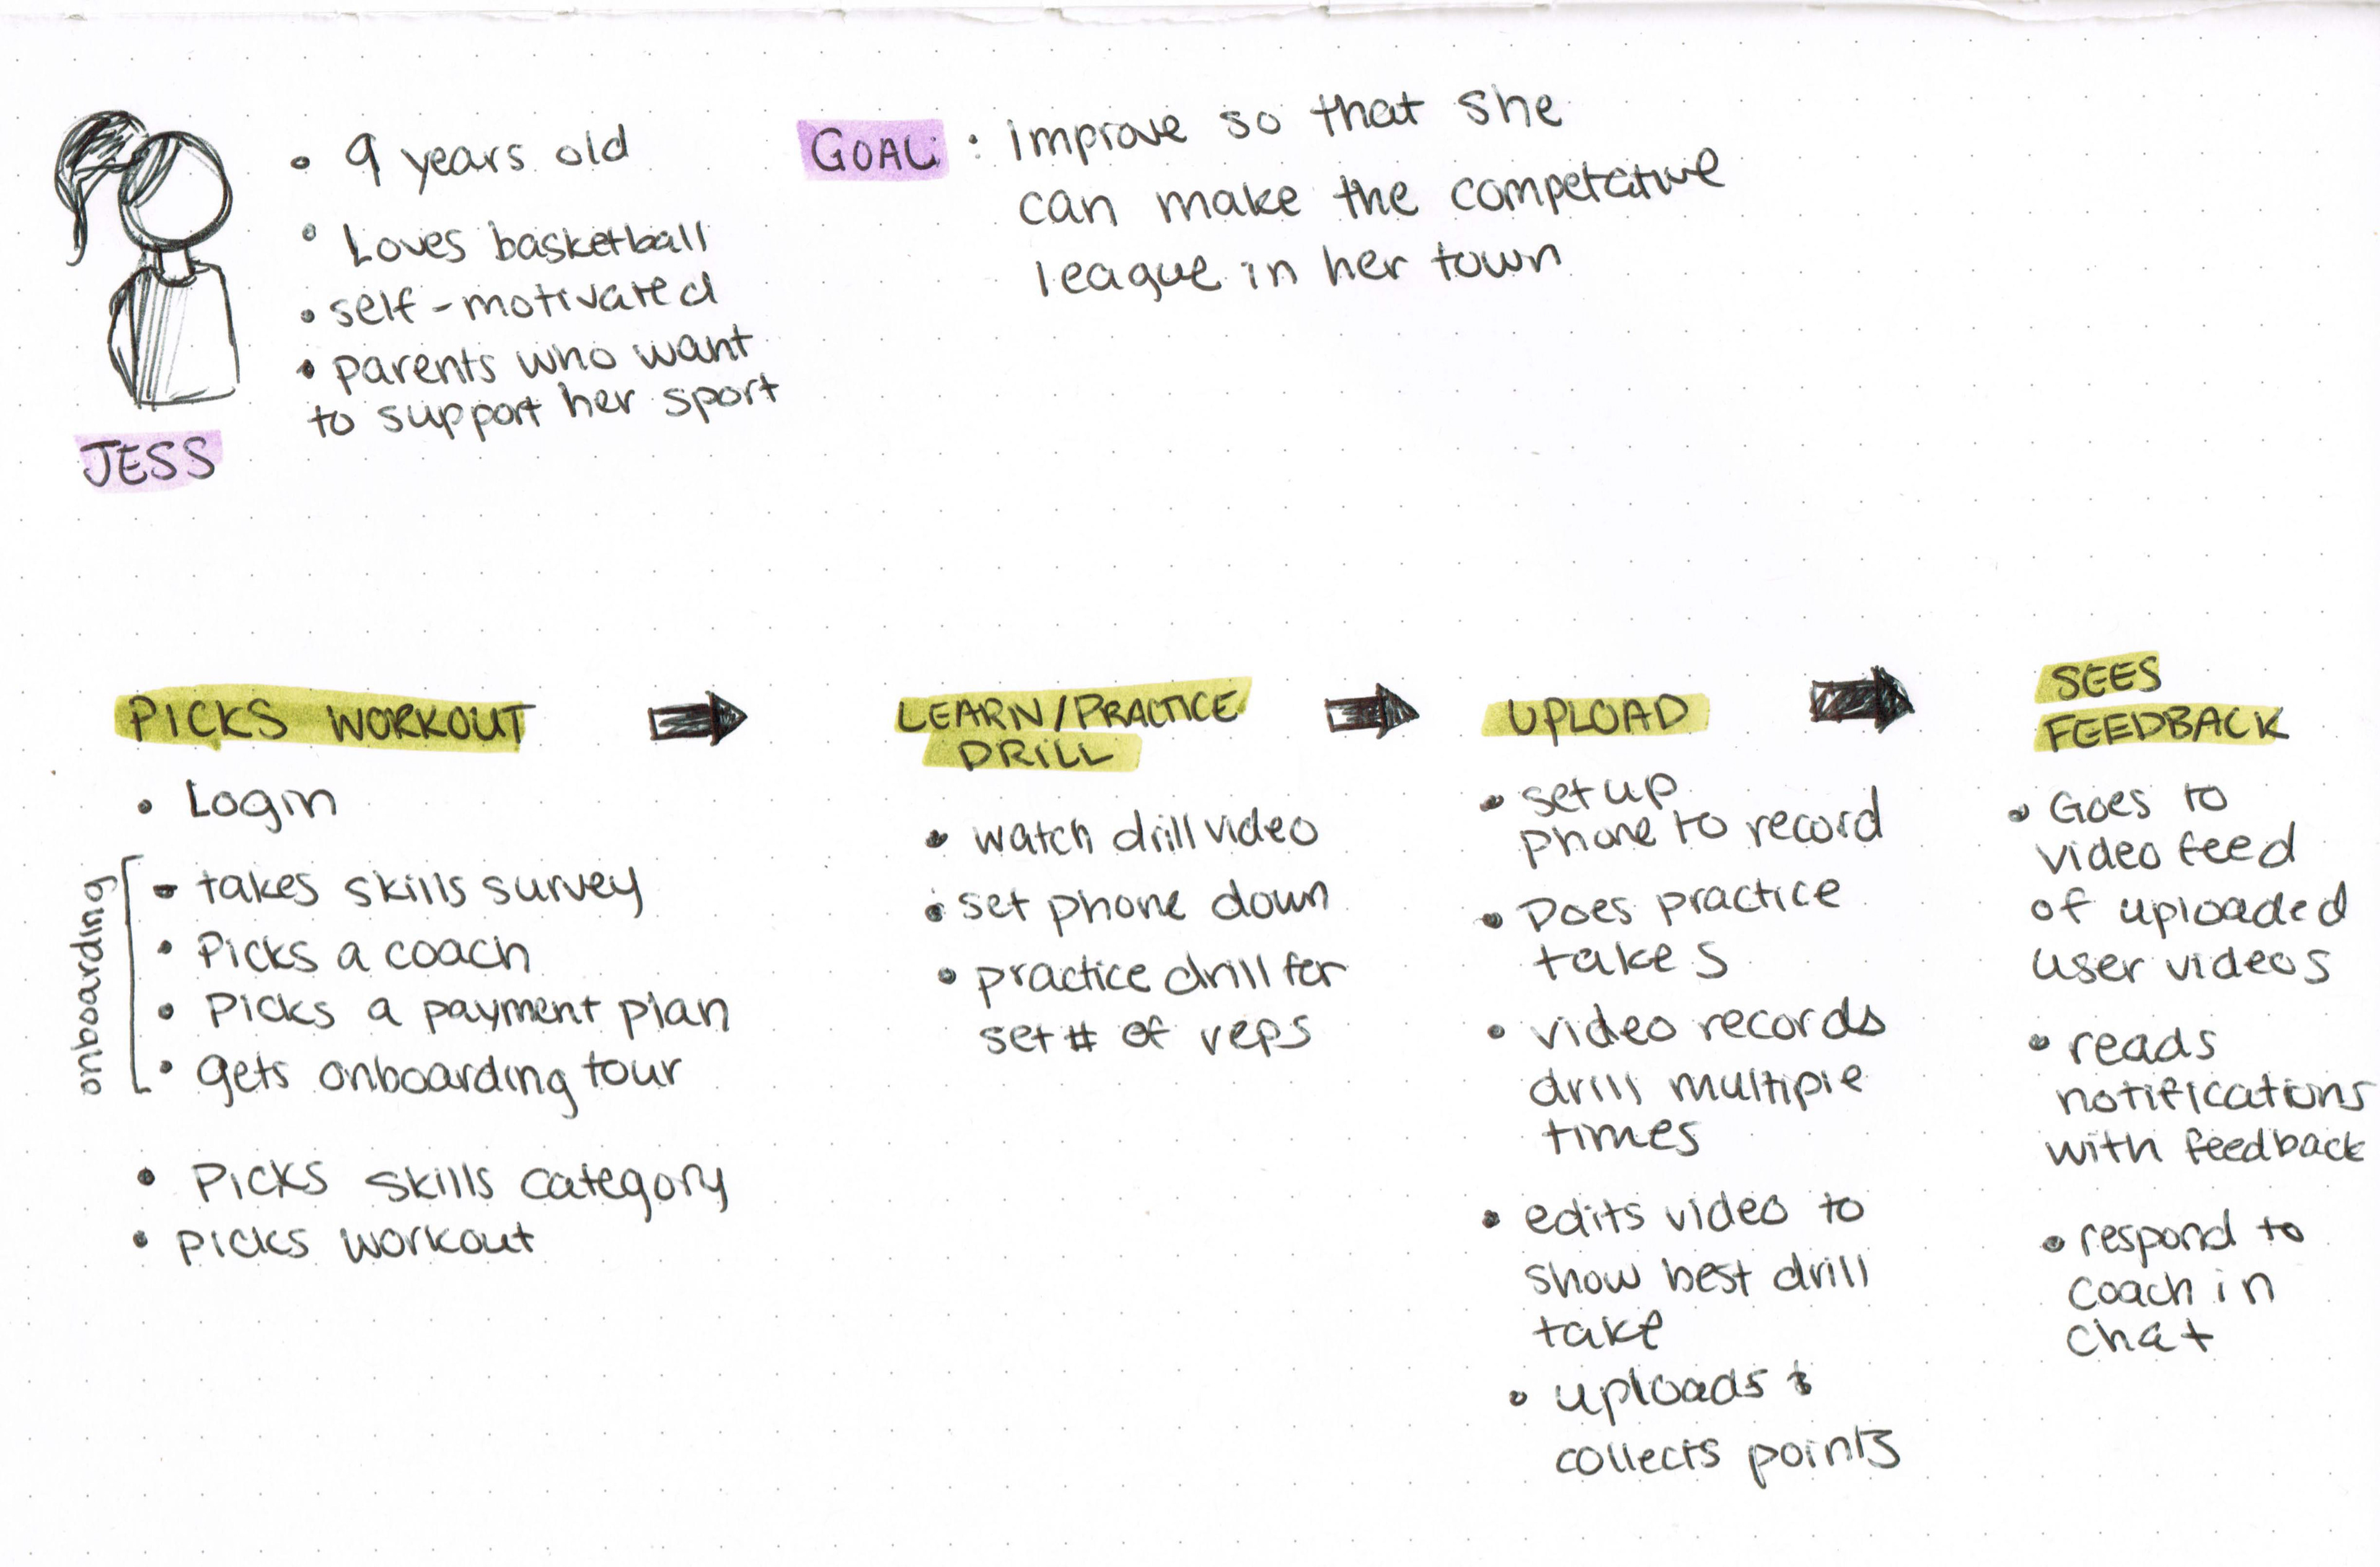 • 9 years old
• Loves basketball
• self-motivated
• parents who want
to support her sport
JESS
GOAL: improve so that she
can make the competative
league in her town
PICKS WORKOUT
• Login
onboarding
• takes skills survey
• Picks a coach
• Picks a payment plan
• gets onboarding tour
• Picks skills category
• picks workout
LEARN/PRACTICE
DRILL
• watch drill video
• set phone down
• practice drill for
set # of reps
UPLOAD
• set up
phone to record
• Does practice
takes
• video records
drill multiple
times
• edits video to
show best drill
take
• uploads &
collects points
SEES
FEEDBACK
• Goes to
video feed
of uploaded
user videos
• reads
notifications
with feedback
• respond to
coach in
chat